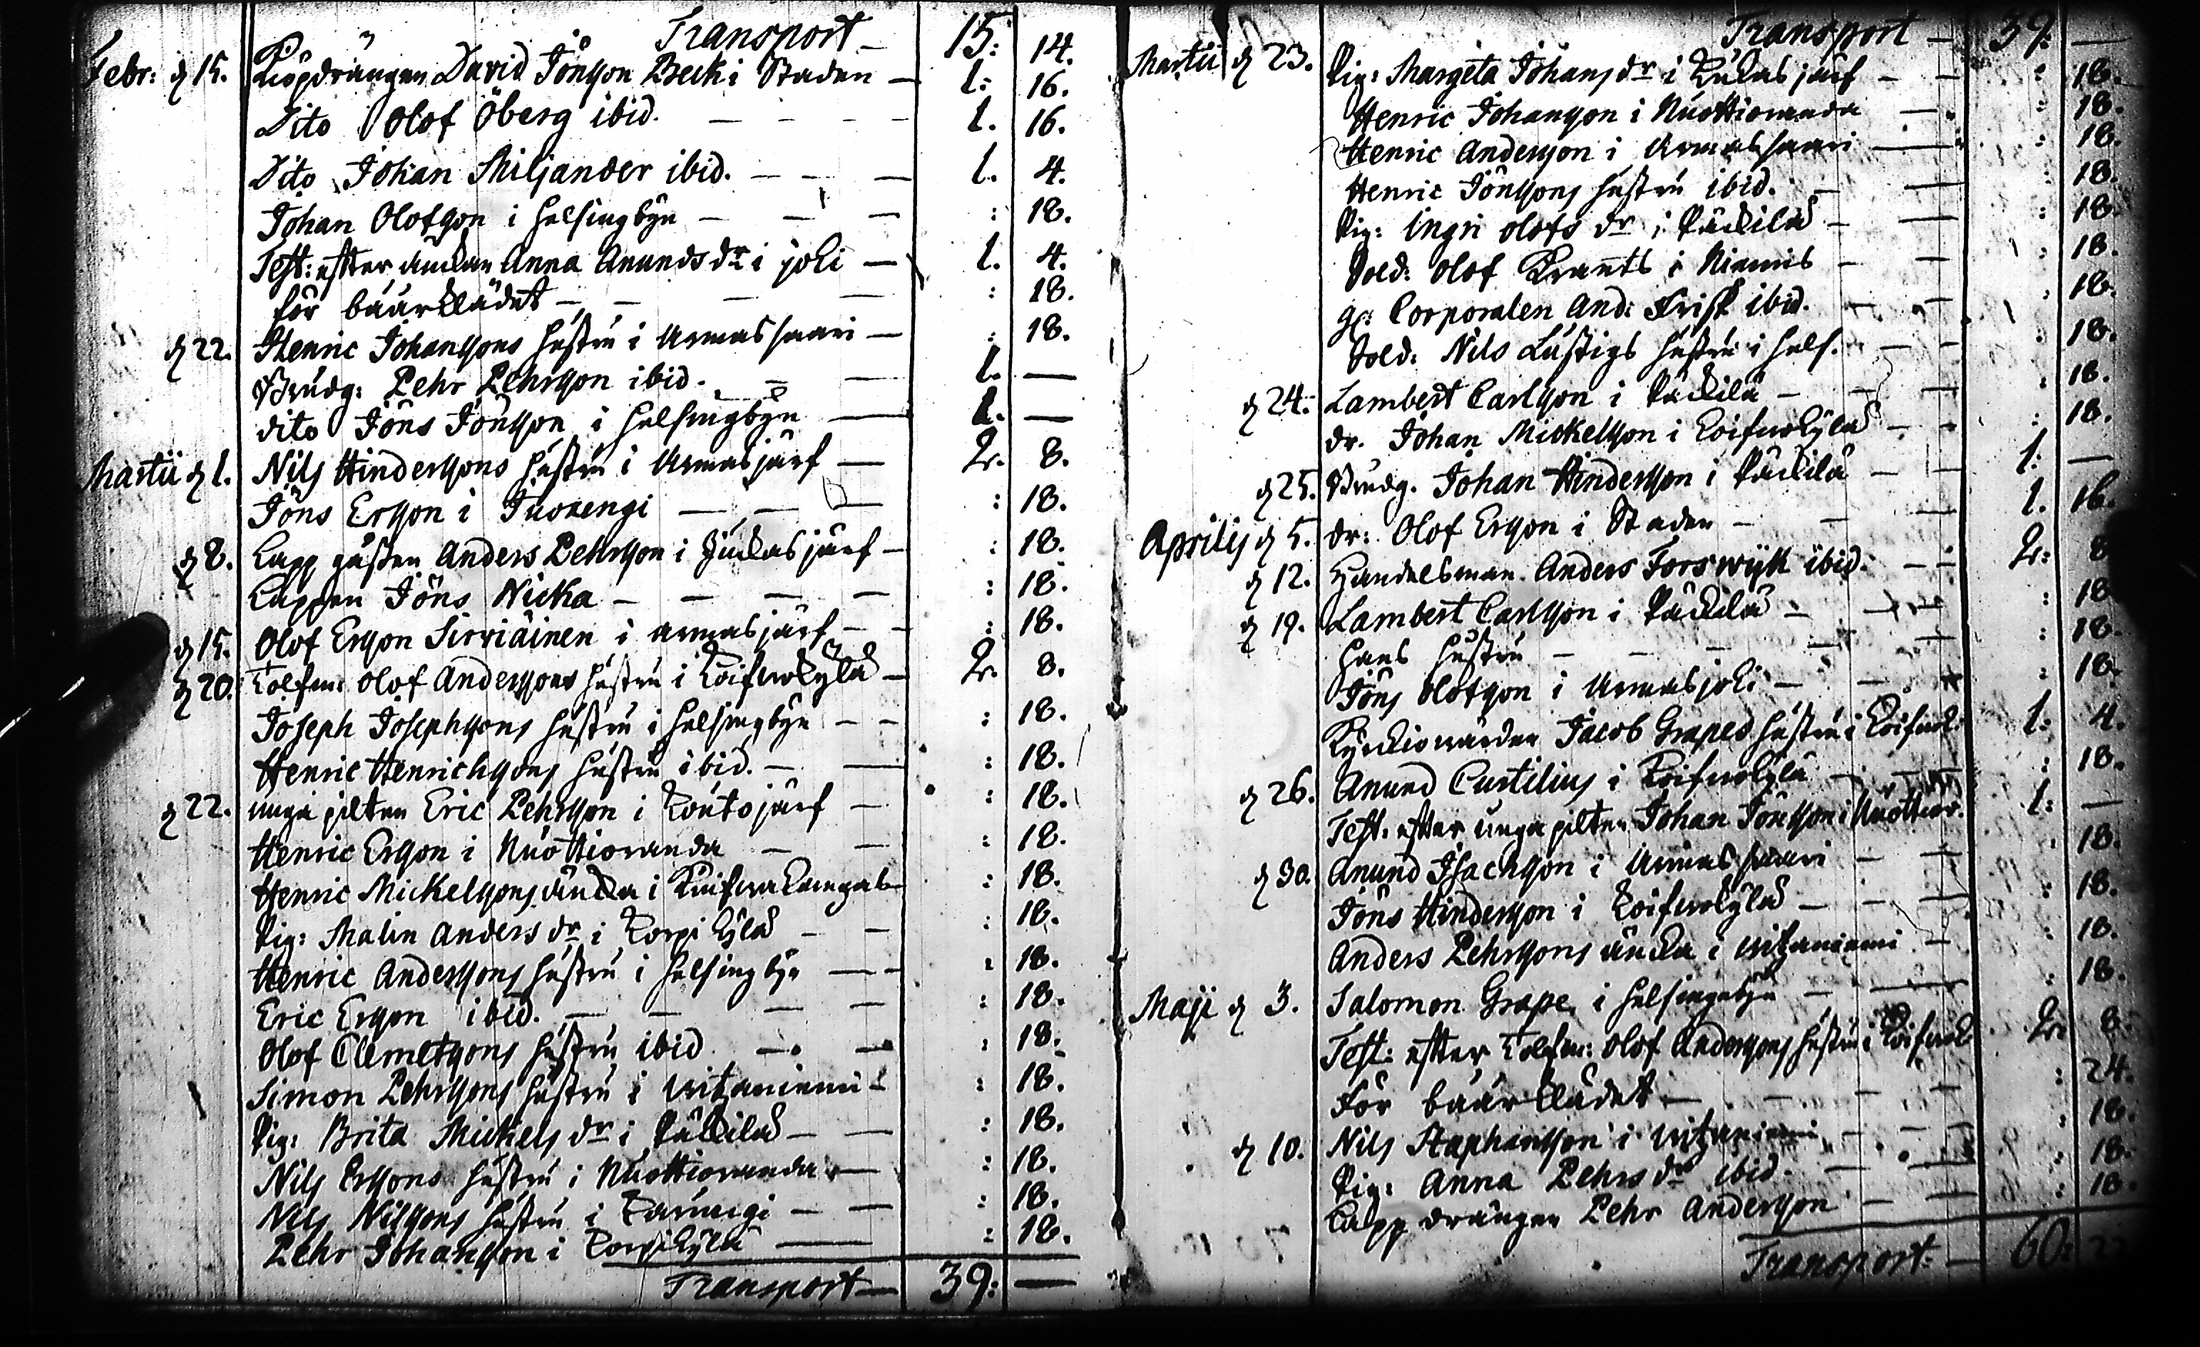 Transport - 15: 14.
Febr: d 15. Köpdrängen David Jönsson Beck i Staden - 1: 16.
Dito Olof Öberg ibid. - - - 1. 16.
Dito Johan Miljander ibid. - - - 1. 4.
Johan Olofsson i Helsingbyn - - - : 18.
Test: efter änckan Anna Anunds dr i joki - 1. 4.
för båårklädet - - - : 18.
d 22. Henric Johanssons hustru i Armassaari - : 18.
Brudg: Pehr Pehrsson ibid. - - 1. -
dito Jöns Jönsson i Helsingbyn - 1. -
Martii d 1. Nils Hinderssons hustru i Armasjärf - 2. 8.
Jöns Ersson i Juoxengi - - - : 18.
d 8. Lapp gåssen Anders Pehrsson i Juckasjärf - : 18.
Lappen Jöns Nicka - - - - : 18.
d 15. Olof Ersson Sirviäinen i Armasjärf - - : 18.
d 20. Tolfm: Olof Anderssons hustru i Koifwokylä - 2. 8.
Joseph Josephssons hustru i Helsingbyn - - : 18.
Henric Henrichssons hustru ibid. - - : 18.
d 22. unga pilten Eric Pehrsson i Koutojärf - : 18.
Henric Ersson i Nuottioranda - - : 18.
Henric Mickelssons äncka i : 18.
Pig: Malin Anders dr i Korpikylä - - : 18.
Henric Anderssons hustru i Helsingbyn - - : 18.
Eric Ersson ibid. - - - : 18.
Olof Clemetssons hustru ibid - - : 18.
Simon Pehrssons hustru i Witzaniemi - : 18.
Pig: Brita Mickels dr i Päckilä - - : 18.
Nils Erssons hustru i Nuottioranda - : 18.
Nils Nilssons hustru i Karungi - - : 18.
Pehr Johansson i Korpikylä - : 18.
Transport - 39: -
Transport - 39: -
Martii d 23. Pig: Margeta Johans dr i järf - - : 18.
Henric Johansson i Nuottioranda - : 18.
Henric Andersson i Armassaari - : 18.
Henric Jönssons hustru ibid. - - : 18.
Pig: Ingri Olofs dr i Päckilä - : 18.
Sold: Olof Krants i Niemis - : 18.
gl: Corporalen And: Frisk ibid. - - : 18.
Sold: Nils Lustigs hustru i Hels. - - : 18.
d 24. Lambert Carlsson i Päckilä - - : 18.
dr. Johan Mickelsson i Koifwokylä - : 18.
d 25. Brudg. Johan Hindersson i Päckilä - - 1: -
Aprilis d 5. dr: Olof Ersson i Staden - - 1. 16.
d 12. Handelsman Anders Forswyk ibid. - - 2: 8
d 19. Lambert Carlsson i Päckilä - : 18
Hans hustru - - - : 18.
Jöns Olofsson i Armasjoki - - : 18.
Kyrckiowärden Jacob Grapes hustru i Koifwok: 1: 4.
d 26. Anund Curtilius i Koifwokylä - : 18.
Test. efter unga pilten Johan Jönsson i Nuottior. 1: -
d 30. Anund Isachsson i Armassaari - - : 18.
Jöns Hindersson i Koifwokylä - - : 18.
Anders Pehrssons äncka i Witzaniemi - : 18.
Maji d 3. Salomon Grape i Helsingebyn - - : 18.
Test: efter Tolfm: Olof Anderssons hustru i Koifwok: 2. 8.
för båårklädet - - - : 24.
d 10. Nils Staphansson i Witzaniemi - - : 18.
Pig: Anna Pehrs dr ibid. - - : 18.
Lapp drängen Pehr Andersson - - : 18.
Transport: - 60: 22